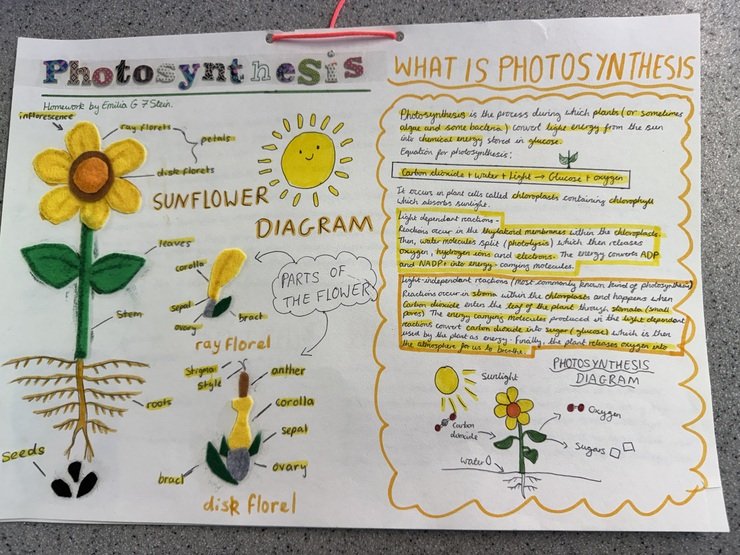 PhotosyntheSiS
Homework by Emilia G 7 Stein.
inflorescence
ray florets
petals
disk florets
SUNFLOWER
DIAGRAM
leaves
corolla
sepal
ovary
bract
ray florel
PARTS OF
THE FLOWER
Stem
Stigma
style
anther
corolla
sepal
ovary
bract
disk florel
roots
Seeds
WHAT IS PHOTOSYNTHESIS
Photosynthesis is the process during which plants (or sometimes
algae and some bacteria) convert light energy from the sun
into chemical energy stored in glucose.
Equation for photosynthesis:
Carbon dioxide + water + light → Glucose + oxygen
It occurs in plant cells called chloroplasts containing chlorophyll
which absorbs sunlight.
Light dependant reactions-
Reactions occur in the thylakoid membranes within the chloroplasts.
Then, water molecules split (photolysis) which then releases
oxygen, hydrogen ions and electrons. The energy converts ADP
and NADP+ into energy-carrying molecules.
Light-independant reactions (most commonly known kind of photosynthesis)
Reactions occur in stroma within the chloroplasts and happens when
Carbon dioxide enters the leaf of the plant through stomata (small
pores) The energy carrying molecules produced in the light dependant
reactions convert carbon dioxide into sugar (glucose) which is then
used by the plant as energy. Finally, the plant releases oxygen into
the atmosphere for us to breathe.
PHOTOSYNTHESIS
DIAGRAM
Sunlight
Oxygen
Carbon
dioxide
Sugars
water